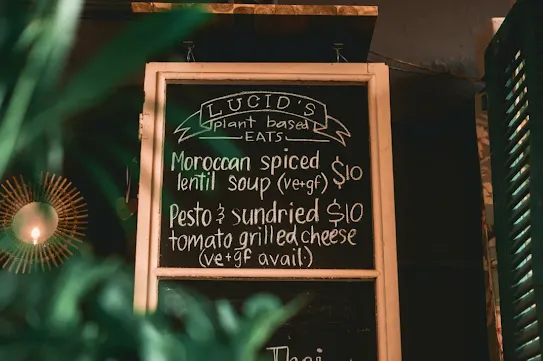 LUCID'S
plant based
EATS
Moroccan spiced
lentil soup (ve+gf) $10
Pesto & sundried $10
tomato grilled cheese
(ve+gf avail)